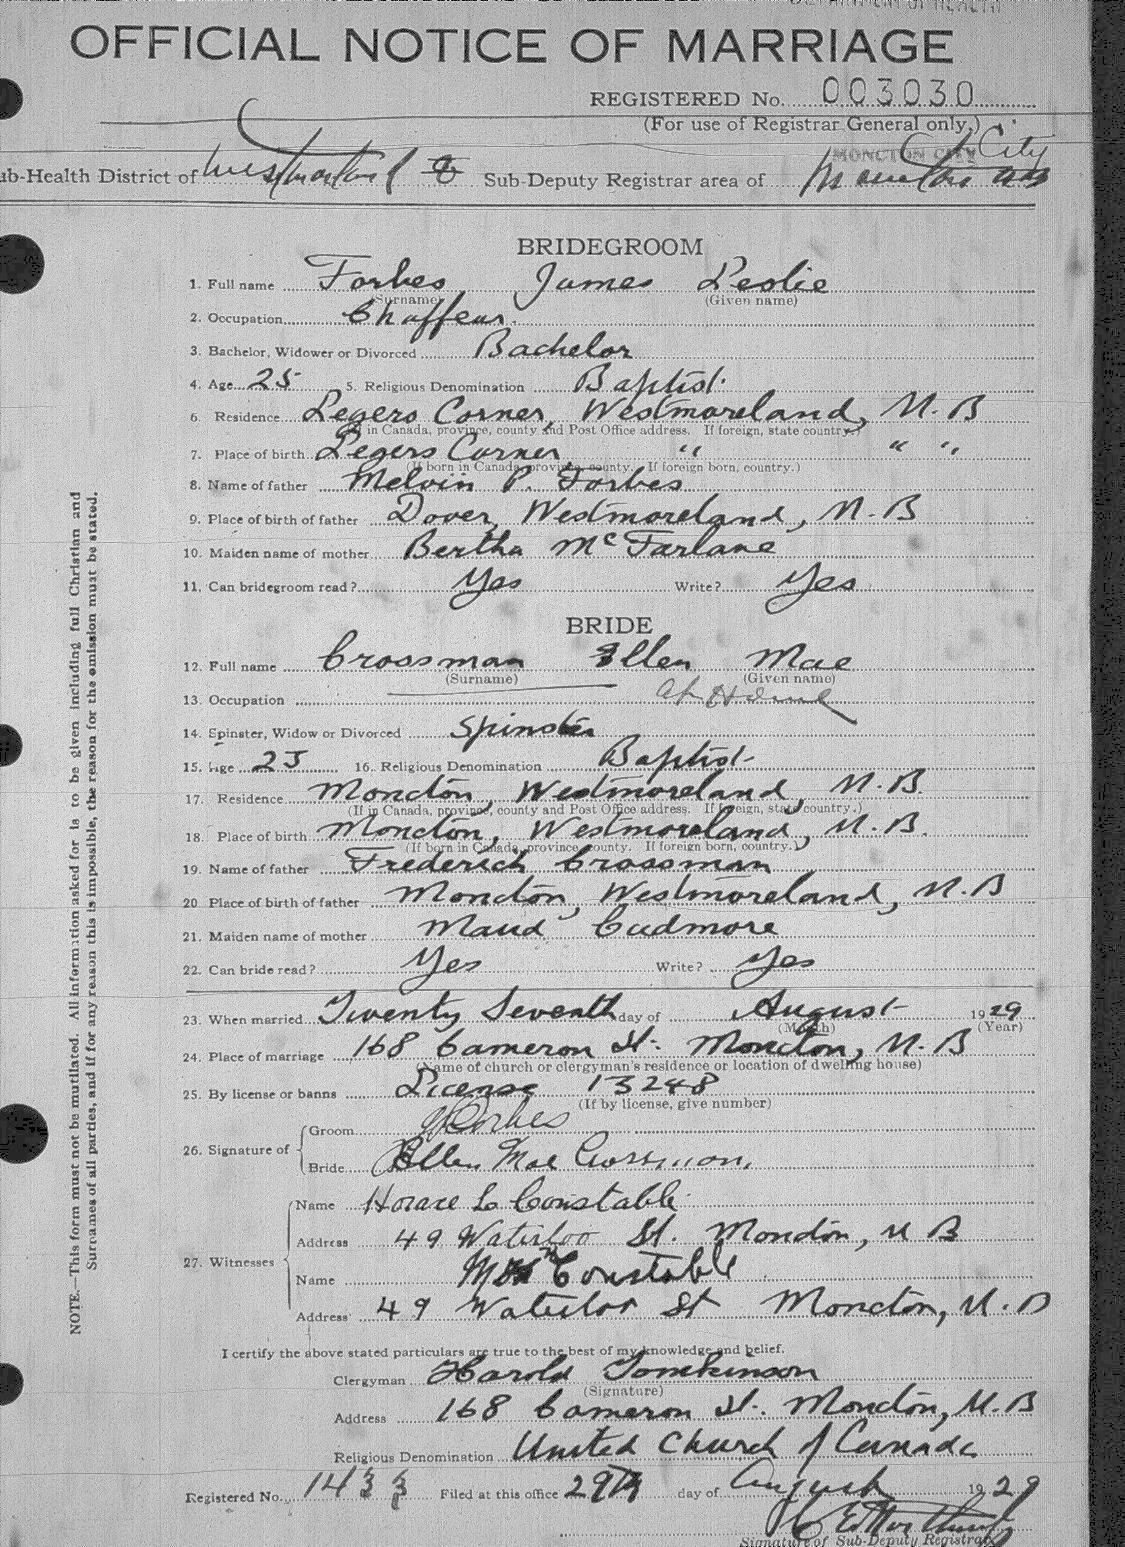 OFFICIAL NOTICE OF MARRIAGE
REGISTERED No. 003030
(For use of Registrar General only.)
MONCTON CITY City
ub-Health District of Westmorland Sub-Deputy Registrar area of
BRIDEGROOM
1. Full name Forbes James Leslie
(Surname) (Given name)
2. Occupation Chaffeur
3. Bachelor, Widower or Divorced Bachelor
4. Age 25 5. Religious Denomination Baptist
6. Residence Legers Corner, Westmoreland, N.B
(If in Canada, province, county and Post Office address. If foreign, state country.)
7. Place of birth Legers Corner " " "
(If born in Canada, province, county. If foreign born, country.)
8. Name of father Melvin P. Forbes
9. Place of birth of father Dover, Westmoreland, N.B
10. Maiden name of mother Bertha McFarlane
11. Can bridegroom read? Yes Write? Yes
BRIDE
12. Full name Crossman Ellen Mae
(Surname) (Given name)
13. Occupation at Home
14. Spinster, Widow or Divorced Spinster
15. Age 23 16. Religious Denomination Baptist
17. Residence Moncton, Westmoreland, N.B.
(If in Canada, province, county and Post Office address. If foreign, state country.)
18. Place of birth Moncton, Westmoreland, N.B.
(If born in Canada, province, county. If foreign born, country.)
19. Name of father Frederick Crossman
20 Place of birth of father Moncton, Westmoreland, N.B
21. Maiden name of mother Maud Cudmore
22. Can bride read? Yes Write? Yes
23. When married Twenty Seventh day of August 1929
(Month) (Year)
24. Place of marriage 168 Cameron St. Moncton, N.B
(Name of church or clergyman's residence or location of dwelling house)
25. By license or banns License 13248
(If by license, give number)
26. Signature of Groom Forbes
Bride Ellen Mae Crossman
27. Witnesses Name Horace L Constable
Address 49 Waterloo St. Moncton, N B
Name Mrs Constable
Address 49 Waterloo St Moncton, N.B
I certify the above stated particulars are true to the best of my knowledge and belief.
Clergyman Harold Tomkinson
(Signature)
Address 168 Cameron St. Moncton, N.B
Religious Denomination United Church of Canada
Registered No. 1433 Filed at this office 29th day of August 1929
Signature of Sub-Deputy Registrar
NOTE.—This form must not be mutilated. All information asked for is to be given including full Christian and
Surnames of all parties, and if for any reason this is impossible, the reason for the omission must be stated.